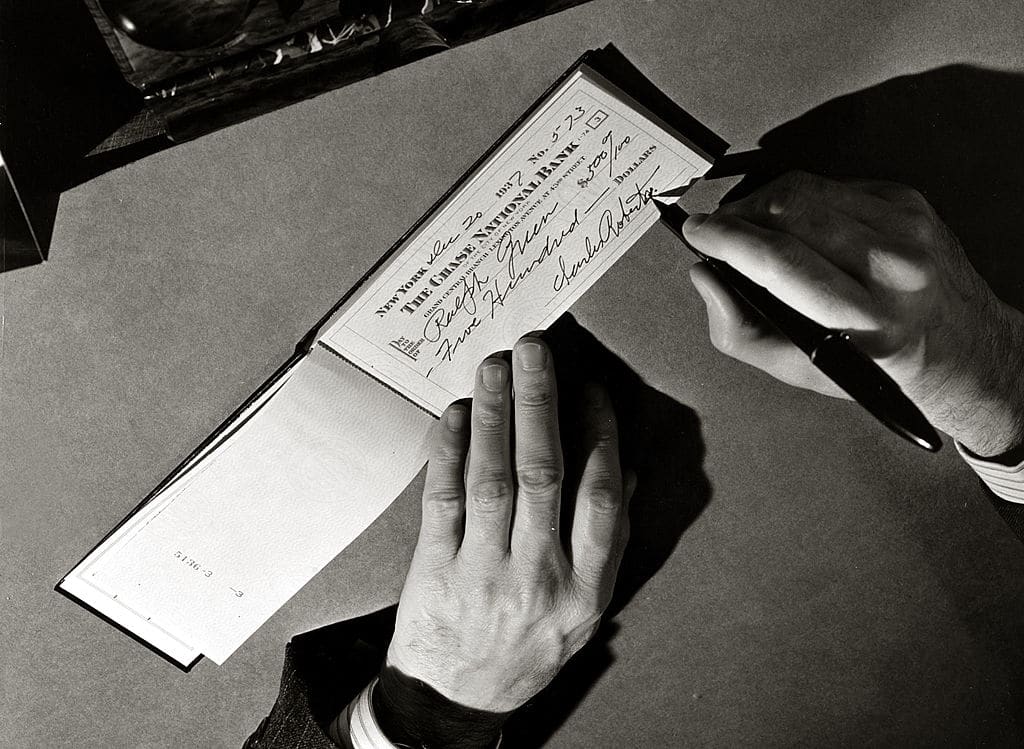 NEW YORK Dec 20 1937 No. 573
THE CHASE NATIONAL BANK 1-74 3
OF THE CITY OF NEW YORK
GRAND CENTRAL BRANCH LEXINGTON AVENUE AT 43RD STREET
PAY TO THE ORDER OF Ralph Green $500 %/100
Five Hundred — DOLLARS
Charles Roberts
5136-3 —3